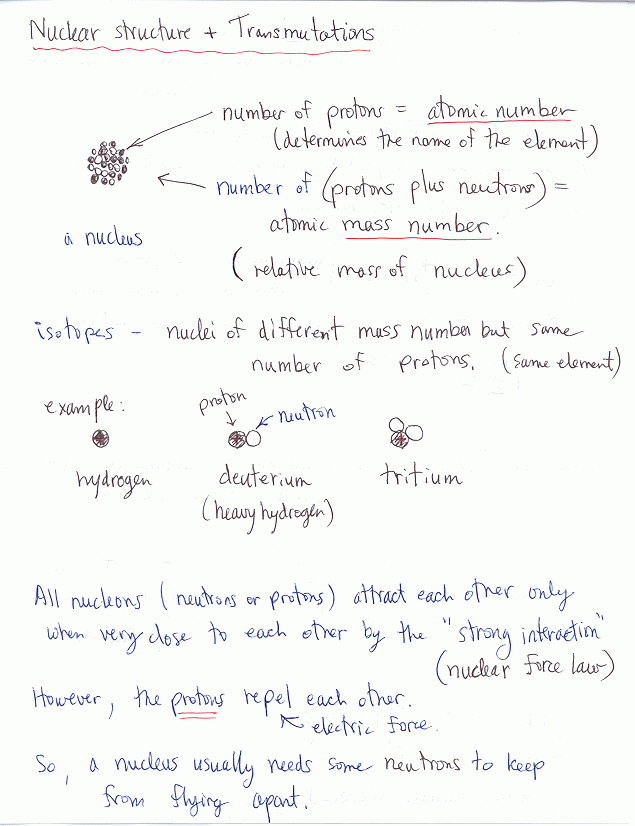 Nuclear structure + Transmutations
number of protons = atomic number
(determines the name of the element)
number of (protons plus neutrons) =
a nucleus
atomic mass number.
(relative mass of nucleus)
isotopes - nuclei of different mass number but same
number of protons. (same element)
example:
proton
neutron
hydrogen
deuterium
tritium
(heavy hydrogen)
All nucleons (neutrons or protons) attract each other only
when very close to each other by the "strong interaction"
(nuclear force law)
However, the protons repel each other.
electric force.
So, a nucleus usually needs some neutrons to keep
from flying apart.